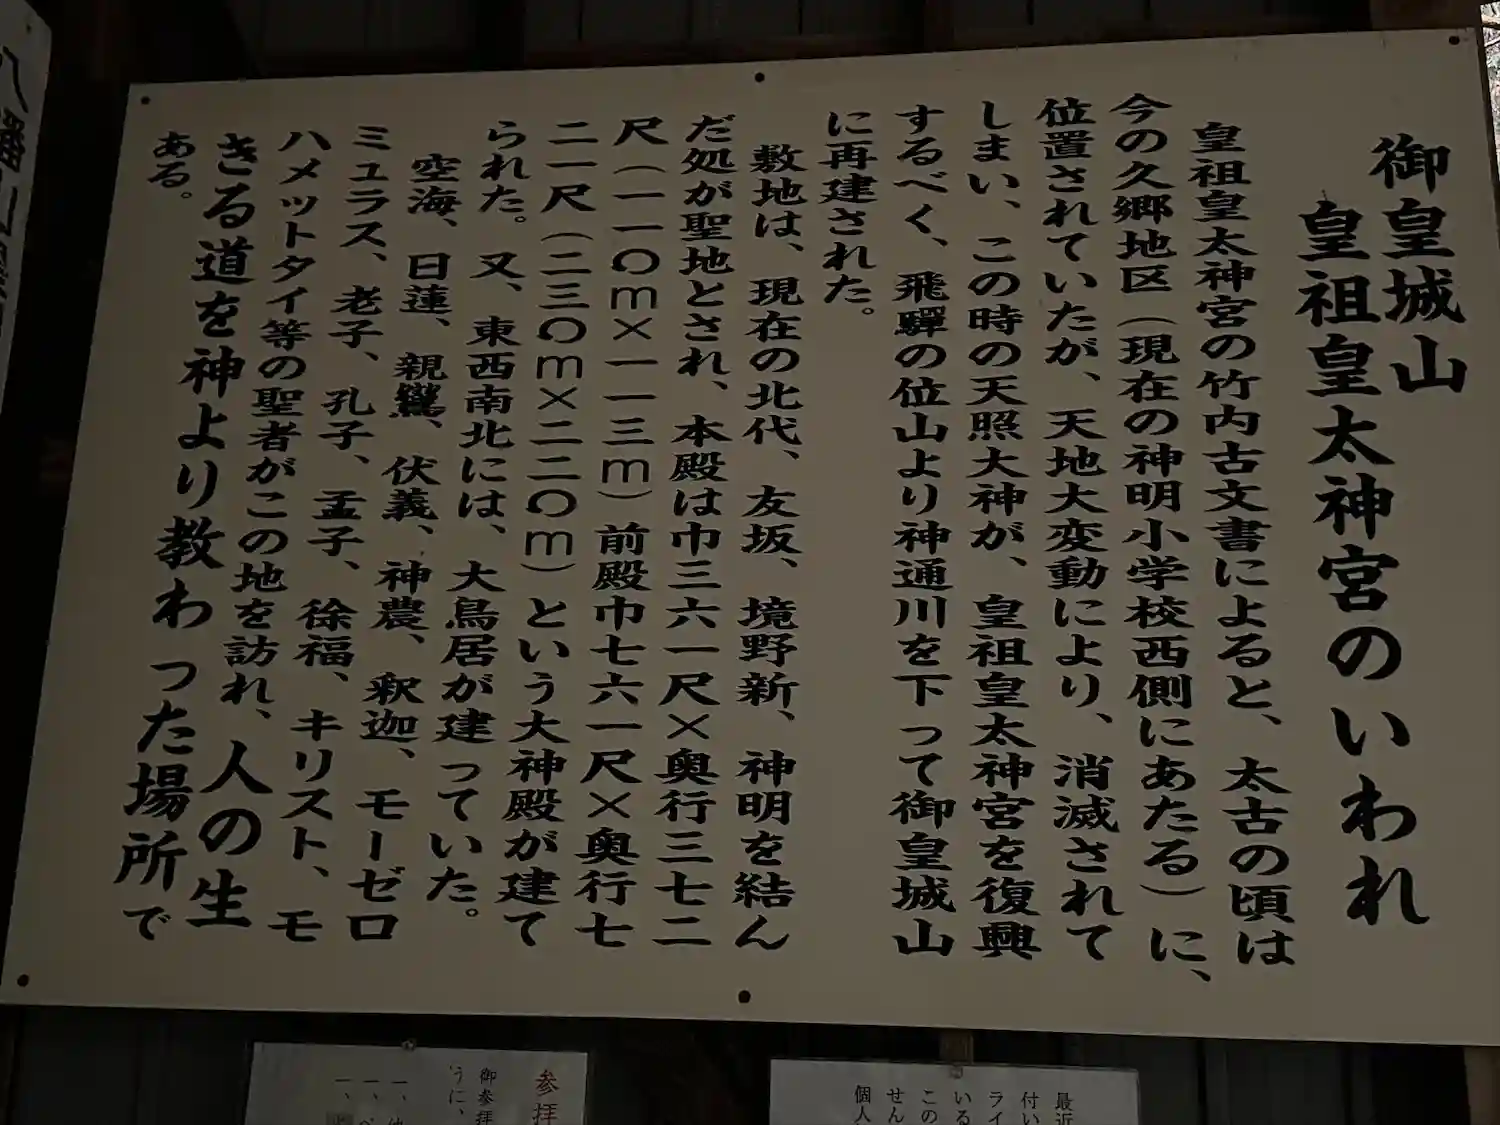 御皇城山
皇祖皇太神宮のいわれ
皇祖皇太神宮の竹内古文書によると、太古の頃は
今の久郷地区(現在の神明小学校西側にあたる)に、
位置されていたが、天地大変動により、消滅されて
しまい、この時の天照大神が、皇祖皇太神宮を復興
するべく、飛驒の位山より神通川を下って御皇城山
に再建された。
敷地は、現在の北代、友坂、境野新、神明を結ん
だ処が聖地とされ、本殿は巾三六一尺×奥行三七二
尺(一一〇m×一一三m)前殿巾七六一尺×奥行七
二一尺(二三〇m×二二〇m)という大神殿が建て
られた。又、東西南北には、大鳥居が建っていた。
空海、日蓮、親鸞、伏義、神農、釈迦、モーゼロ
ミュラス、老子、孔子、孟子、徐福、キリスト、モ
ハメットタイ等の聖者がこの地を訪れ、人の生
きる道を神より教わった場所で
ある。
参拝
御参拝
うに、
一、
一、
一、
最近
付い
ライ
いる
この
せん
個人